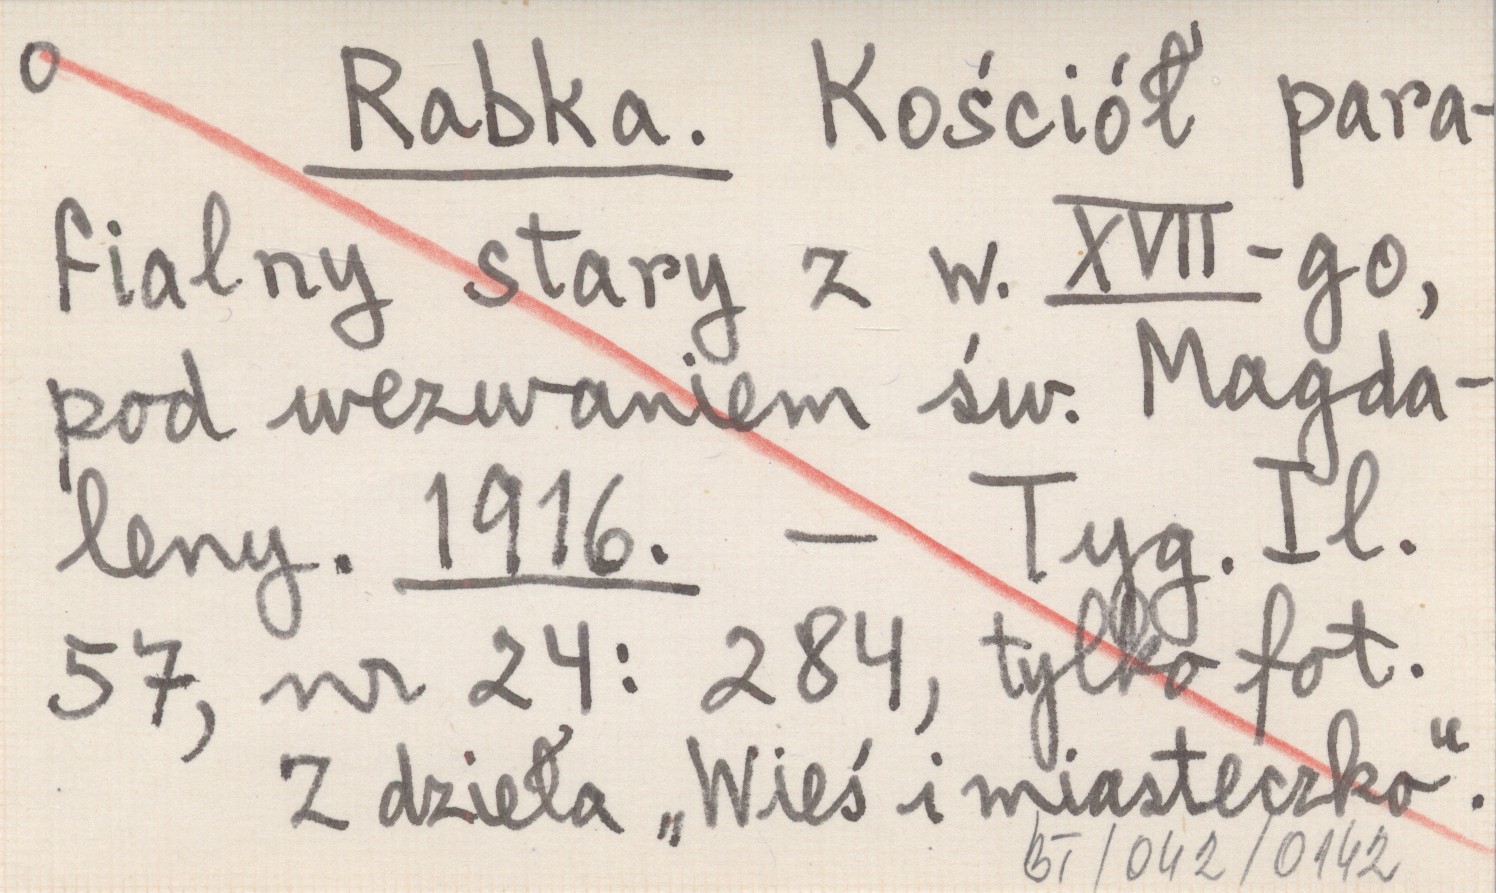 o Rabka. Kościół para-
fialny stary z w. XVII-go,
pod wezwaniem św. Magda-
leny. 1916. — Tyg. Il.
57, nr 24: 284, tylko fot.
Z dzieła „Wieś i miasteczko".
BI/042/0142